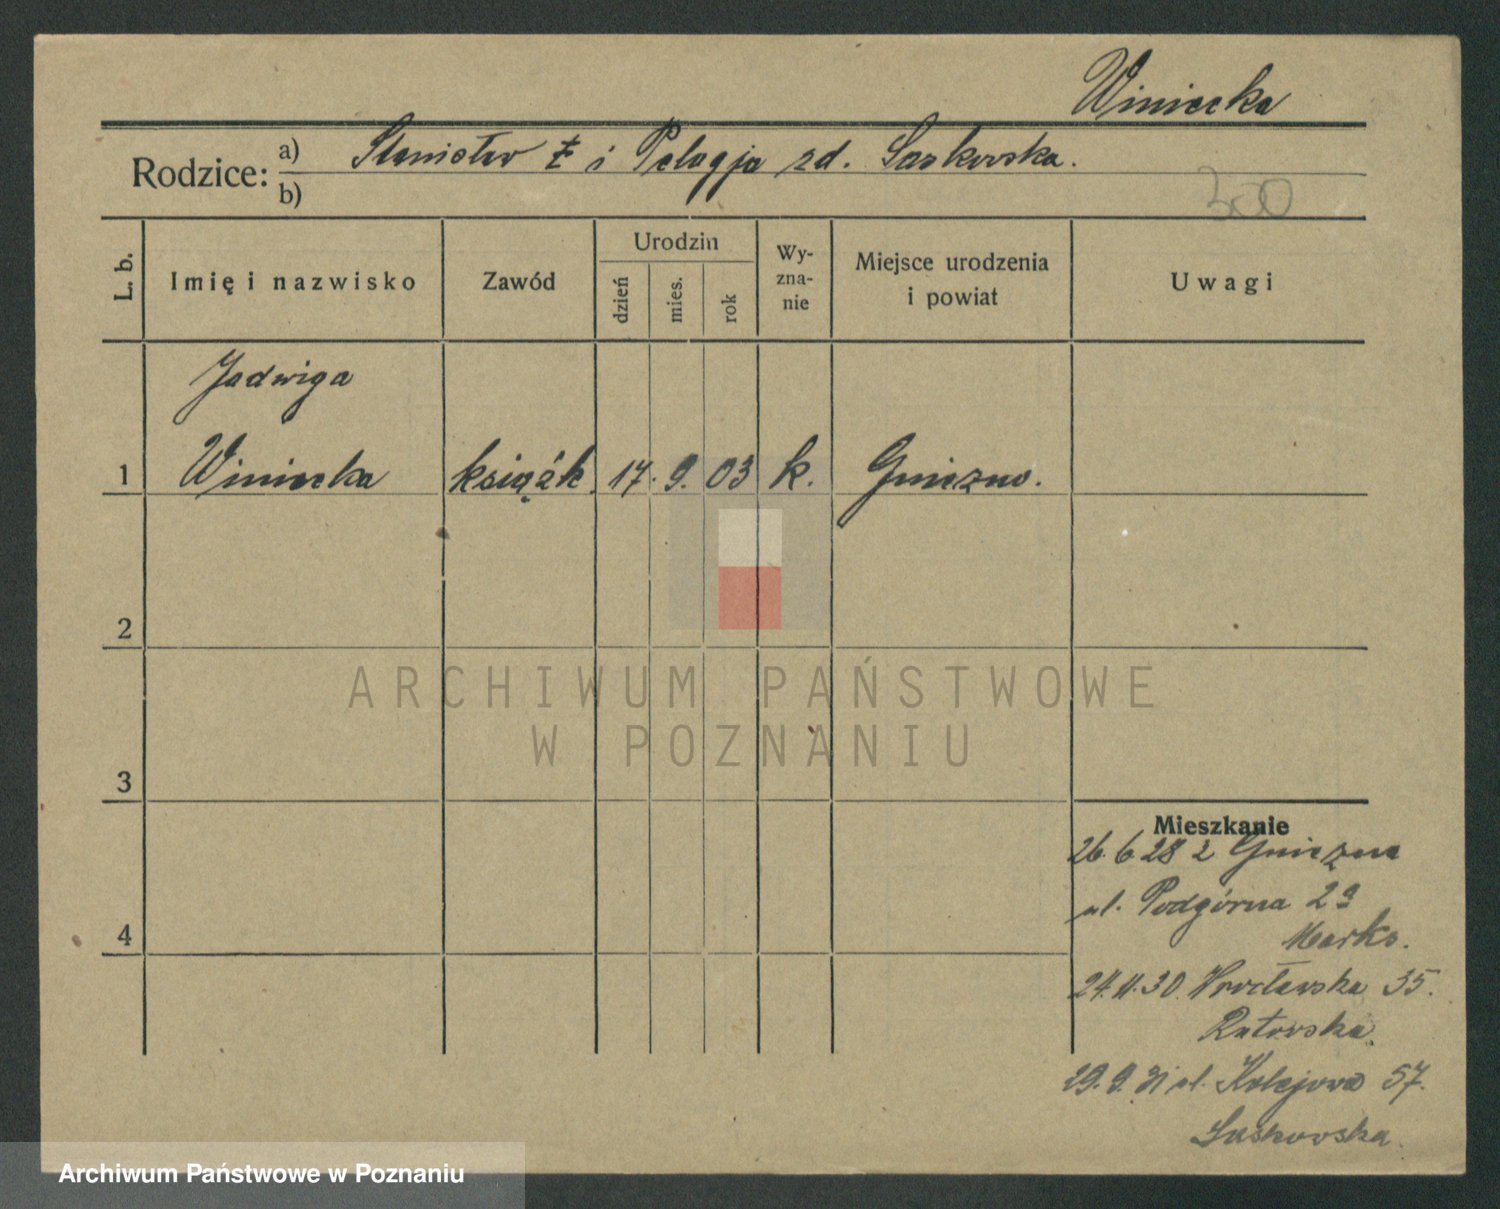 Winiecka
Rodzice: a) Stanisław ‡ i Pelagja zd. Laskowska.
b)
300
L. b.
Imię i nazwisko
Zawód
Urodzin
dzień
mies.
rok
Wy-
zna-
nie
Miejsce urodzenia
i powiat
Uwagi
Jadwiga
1 Winiecka książk. 17. 9. 03 k. Gniezno.
2
3
4
Mieszkanie
26. 6 28 z Gniezna
ul. Podgórna 2a
Marks.
24. 11. 30. Wrocławska 35.
Ratowska.
29. 9. 31 ul. Kolejowa 57.
Laskowska.
ARCHIWUM PAŃSTWOWE
W POZNANIU
Archiwum Państwowe w Poznaniu